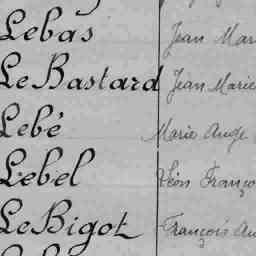 Lebas Jean Mar
Le Bastard Jean Marie
Lebé Marie Ange
Lebel Léon Franço
Le Bigot François Au